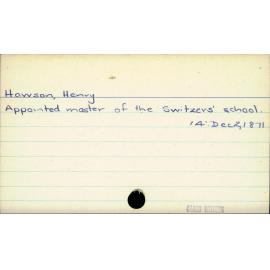 Howson, Henry
Appointed master of the Switzers' school.
'A' Dec 2, 1871